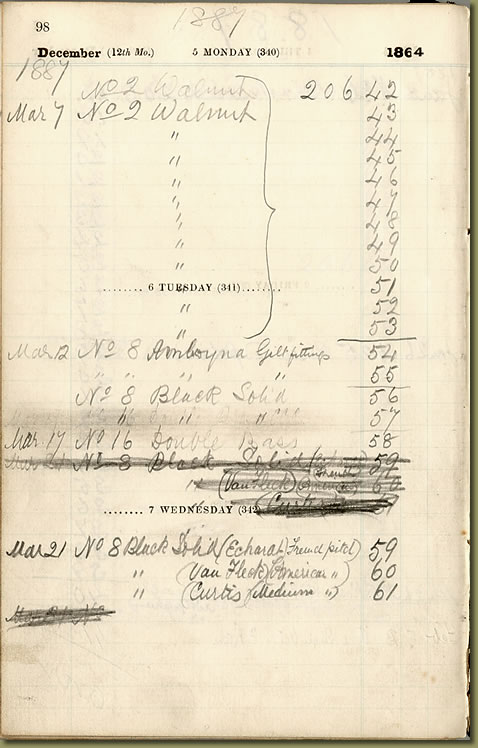 98
1887
December (12th Mo.) 5 MONDAY (340) 1864
1887
No 2 Walnut 20642
Mar 7 No 2 Walnut 43
" 44
" 45
" 46
" 47
" 48
" 49
" 50
........ 6 TUESDAY (341)........ 51
" 52
" 53
Mar 12 No 8 Amboyna Gilt fittings 54
" " " 55
No 8 Black Solid 56
" " " 57
Mar. 17 No 16 Double Bass 58
Mar 21 No 8 Black Solid 59
(Van Fleck) (American) 60
(Curtis
........ 7 WEDNESDAY (342)
Mar 21 No 8 Black Solid (Echardt) French pitch) 59
" (Van Fleck) American ") 60
" (Curtis (Medium ") 61
Mar 21 No